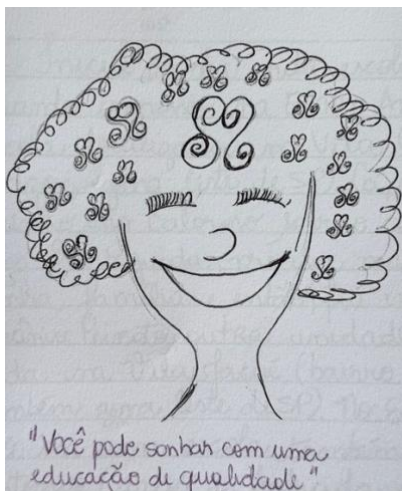 "Você pode sonhar com uma
educação de qualidade"